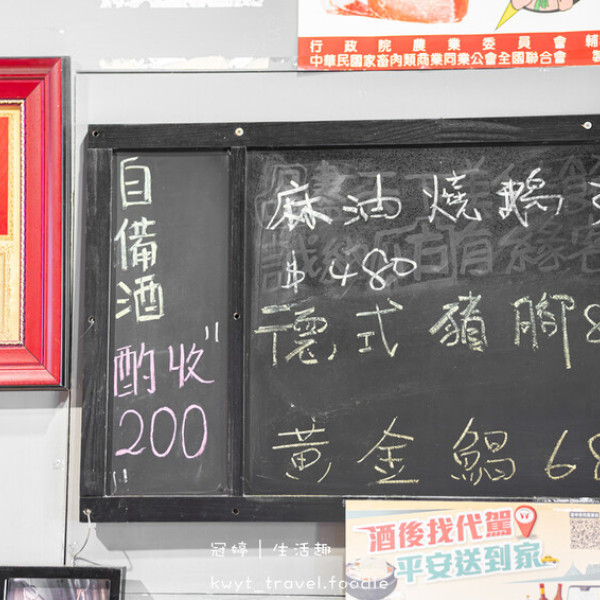 行政院農業委員會 輔
中華民國家畜肉類商業同業公會全國聯合會
自備酒
酌收"
200
"
麻油燒鵝
$480
德式豬腳8
黃金鯧68
酒後找代駕
平安送到家
冠婷｜生活趣
kwyt_travel.foodie